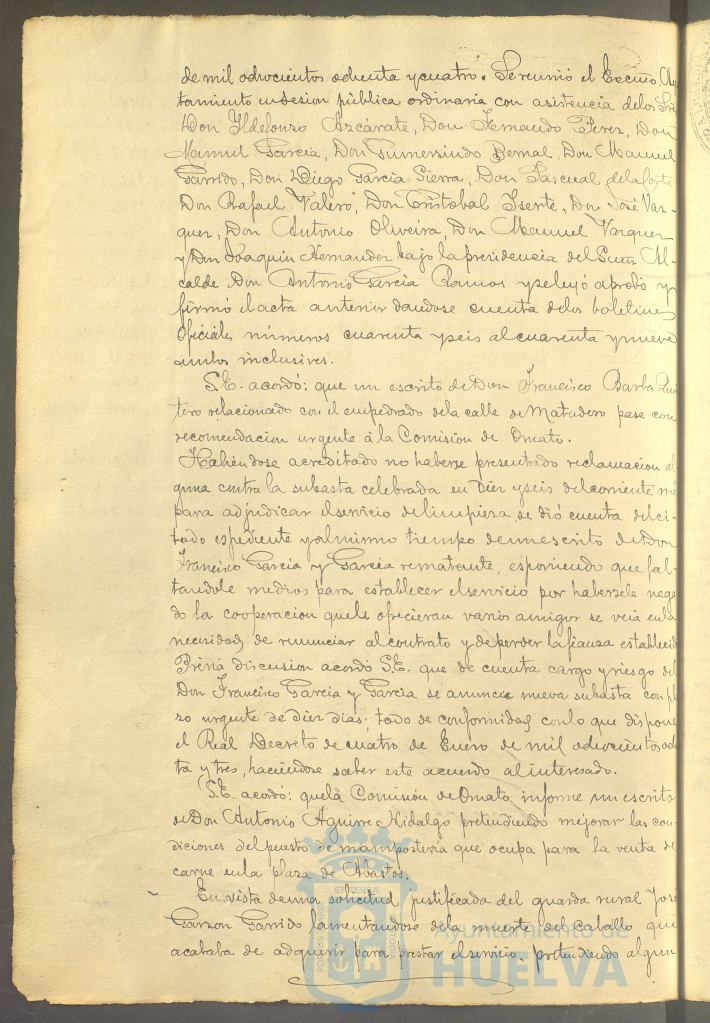 de mil ochocientos ochenta y cuatro. Se reunió el Excmo. Ayun
tamiento en sesion pública ordinaria con asistencia de los Sres
Don Ildefonso Azcárate, Don Fernando Perez, Don
Manuel Garcia, Don Gumersindo Bernal, Don Manuel
Garrido, Don Diego Garcia Sierra, Don Pascual de la Corte
Don Rafael Valero, Don Cristobal Iserte, Don José Vaz-
quez, Don Antonio Oliveira, Don Manuel Vazquez
y Don Joaquin Hernandez bajo la presidencia del Al-
calde Don Antonio Garcia Ramos y se leyó aprobó y
firmó el acta anterior dandose cuenta de los boletines
Oficiales números cuarenta y seis al cuarenta y nueve
ambos inclusives.
S.E. acordó: que un escrito de Don Francisco Barba Quin
tero relacionado con el empedrado de la calle de Matadero pase con
recomendacion urgente á la Comision de Ornato.
Habiendose acreditado no haberse presentado reclamacion al
guna contra la subasta celebrada en diez y seis del corriente mes
para adjudicar el servicio de limpieza se dió cuenta del ci-
tado espediente y al mismo tiempo de un escrito de Don
Francisco Garcia y Garcia rematante, esponiendo que fal-
tandole medios para establecer el servicio por habersele nega
do la cooperacion que le ofrecieran varios amigos se veia en la
necesidad de renunciar al contrato y de perder la fianza establecida
Prévia discusion acordó S.E. que de cuenta cargo y riesgo del
Don Francisco Garcia y Garcia se anuncie nueva subasta con pla
zo urgente de diez dias, todo de conformidad con lo que dispone
el Real Decreto de cuatro de Enero de mil ochocientos ochen
ta y tres, haciendose saber este acuerdo al interesado.
S.E. acordó: que la Comision de Ornato informe un escrito
de Don Antonio Aguirre Hidalgo pretendiendo mejorar las con
diciones del puesto de mamposteria que ocupa para la venta de
carne en la plaza de Abastos.
En vista de una solicitud justificada del guarda rural José
Garzon Garrido lamentandose de la muerte del caballo que
acababa de adquirir para prestar el servicio. pretendiendo algun
Ayuntamiento de
HUELVA